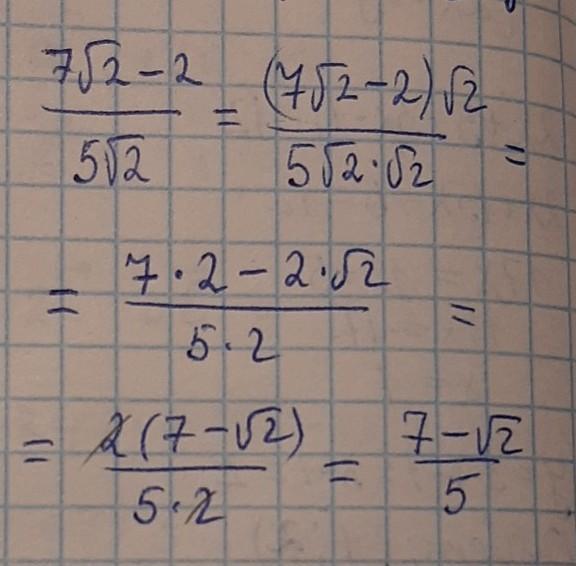 (7√2 − 2)/(5√2) = ((7√2 − 2)√2)/(5√2·√2) =
= (7·2 − 2·√2)/(5·2) =
= (2(7 − √2))/(5·2) = (7 − √2)/5